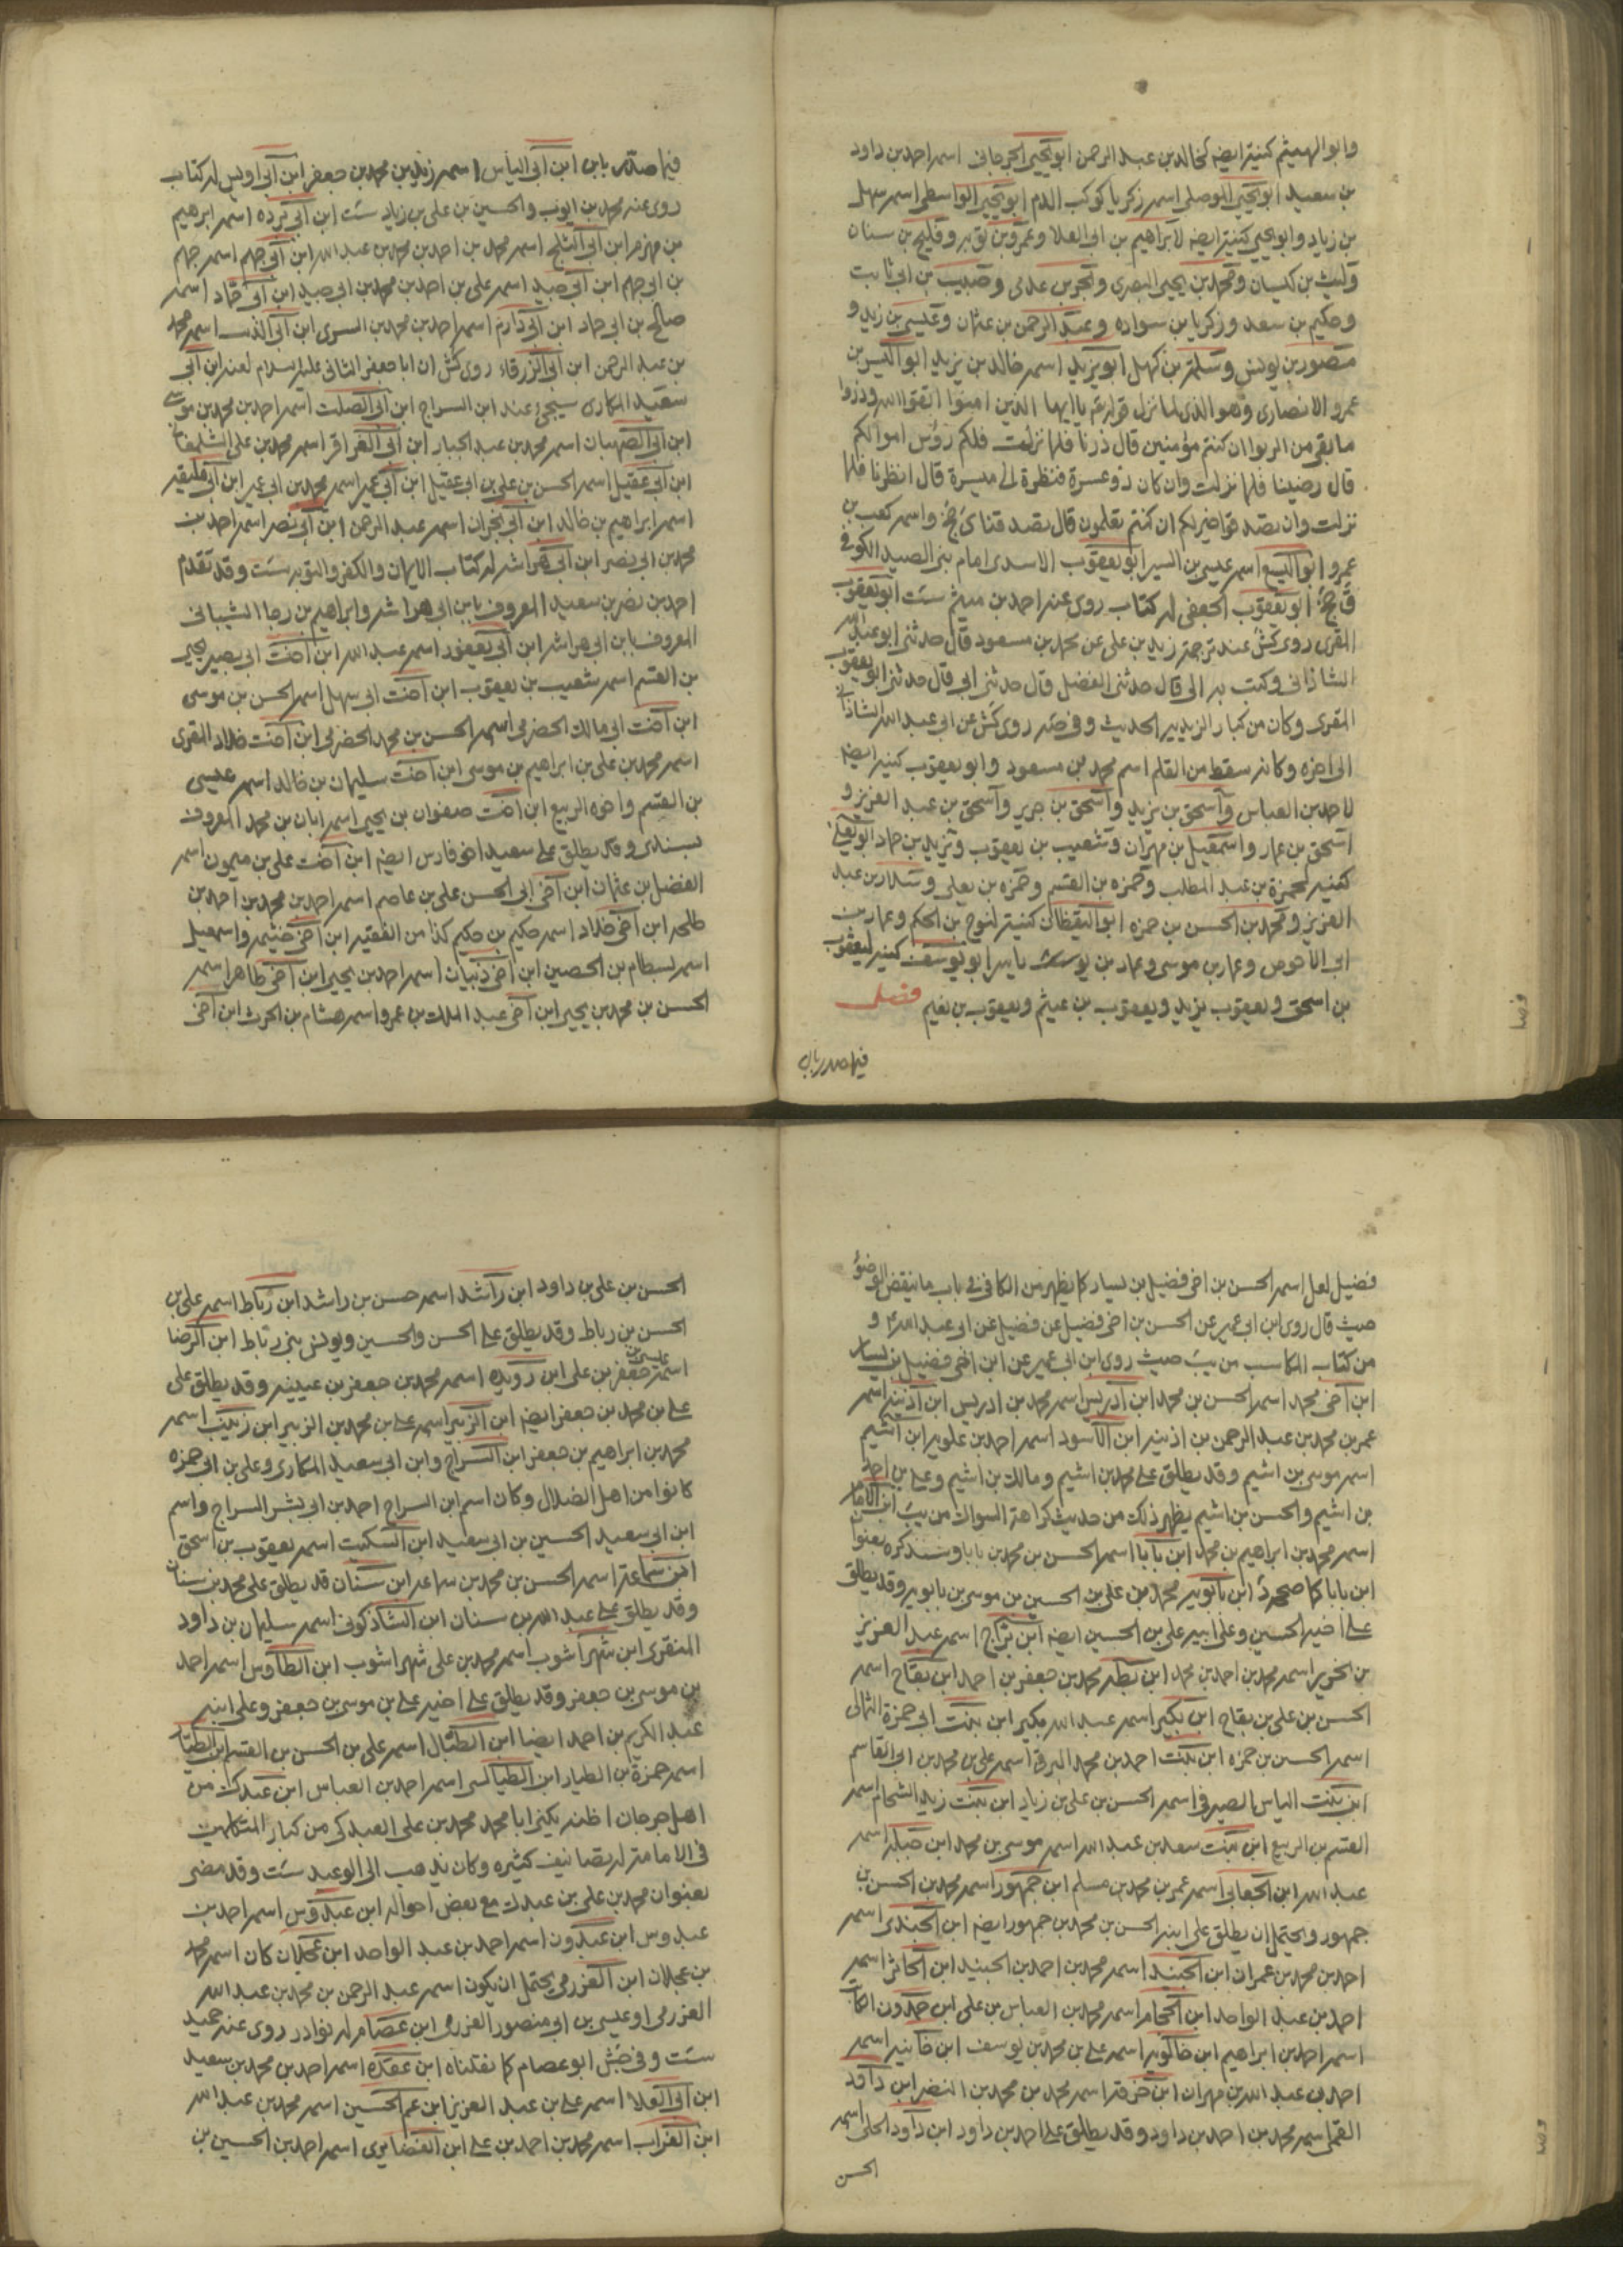 وابو الهيثم كنيته ايضه لخالد بن عبد الرحمن ابو يحيى الجرجانى اسمه احمد بن داود
بن سعيد ابو يحيى الموصلى اسمه زكريا كوكب الدم ابو يحيى الواسطى اسمه سهل
بن زياد وابو يحيى كنيته ايضه لابراهيم بن ابى العلا وعمرو بن توبه وفليح بن سنان
وليث بن كيسان ومحمد بن يحيى البصرى وبحر بن عدى وحبيب بن ابى ثابت
وحكيم بن سعد وزكريا بن سواده وعبد الرحمن بن عثمان وعيسى بن زيد و
منصور بن يونس وسلمة بن كهيل ابو يزيد اسمه خالد بن يزيد ابو اليسر بن
عمرو الانصارى وهو الذى لما نزل قوله تع يا ايها الذين امنوا اتقوا الله وذروا
ما بقى من الربوا ان كنتم مؤمنين قال ذرنا فلما نزلت فلكم رؤس اموالكم
قال رضينا فلما نزلت وان كان ذو عسرة فنظرة الى ميسرة قال انظرنا فلما
نزلت وان تصدقوا خير لكم ان كنتم تعلمون قال تصدقنا ئ جخ واسمه كعب بن
عمرو ابو اليسع اسمه عيسى بن السير ابو يعقوب الاسدى امام بنى الصيد الكوفى
ق جخ ابو يعقوب الجعفى له كتاب روى عنه احمد بن ميثم ست ابو يعقوب
المقرى روى كش عند ترجمة زيد بن على عن محمد بن مسعود قال حدثنى ابو عبد الله
الشاذانى وكتب به الى قال حدثنى الفضل قال حدثنى ابى قال حدثنى ابو يعقوب
المقرى وكان من كبار الزيديه الحديث وفى صه روى كش عن ابى عبد الله الشاذانى
الى اخره وكانه سقط من القلم اسم محمد بن مسعود وابو يعقوب كنيته ايضه
لاحمد بن العباس واسحق بن يزيد واسحق بن جرير واسحق بن عبد العزيز و
اسحق بن عمار واسمعيل بن مهران وشعيب بن يعقوب ويزيد بن حماد ابو يعلى
كنيته لحمزة بن عبد المطلب وحمزه بن القسم وحمزه بن يعلى وسلار بن عبد
العزيز ومحمد بن الحسن بن حمزه ابو اليقظان كنيته لنوح بن الحكم وعمار بن
ابى الاحوص وعمار بن موسى وعمار بن يوسف كنيته ليعقوب
بن اسحق ويعقوب بن يزيد ويعقوب بن عيثم ويعقوب بن نعيم فصل
فيما صدر بابن
فيما صدر بابن ابن ابى الياس اسمه زيد بن محمد بن جعفر ابن ابى اويس له كتاب
روى عنه محمد بن ايوب والحسين بن على بن زياد ست ابن ابى برده اسمه ابرهيم
بن مهزم ابن ابى الثلج اسمه محمد بن احمد بن محمد بن عبد الله ابن ابى جهم اسمه جهم
بن ابى جهم ابن ابى جيد اسمه على بن احمد بن محمد بن ابى جيد ابن ابى حماد اسمه
صالح بن ابى حماد ابن ابى دارم اسمه احمد بن محمد بن السرى ابن ابى الذئب اسمه محمد
بن عبد الرحمن ابن ابى الزرقاء روى كش ان ابا جعفر الثانى عليه السلام لعنه ابن ابى
سعيد المكارى سيجئ عند ابن السراج ابن ابى الصلت اسمه احمد بن محمد بن موسى
ابن ابى الصهبان اسمه محمد بن عبد الجبار ابن ابى العزاقر اسمه محمد بن على الشلمغانى
ابن ابى عقيل اسمه الحسن بن على بن ابى عقيل ابن ابى عمير اسمه محمد بن ابى عمير ابن ابى
اسمه ابراهيم بن خالد ابن ابى نجران اسمه عبد الرحمن ابن ابى نصر اسمه احمد بن
محمد بن ابى نصر ابن ابى هراشه له كتاب الايمان والكفر والتوبه ست وقد تقدم
احمد بن نصر بن سعيد المعروف بابن ابى هراشه وابراهيم بن رجا الشيبانى
المعروف بابن ابى هراشه ابن ابى يعفور اسمه عبد الله ابن اخت ابى بصير يحيى
بن القسم اسمه شعيب بن يعقوب ابن اخت ابى سهل اسمه الحسن بن موسى
ابن اخت ابى مالك الحضرمى اسمه الحسن بن محمد الحضرمى ابن اخت خلاد المقرى
اسمه محمد بن على بن ابراهيم بن موسى ابن اخت سليمان بن خالد اسمه عيسى
بن القسم واخوه الربيع ابن اخت صفوان بن يحيى اسمه ابان بن محمد المعروف
بسندى وقد يطلق على سعيد اخو فارس ايضه ابن اخت على بن ميمون اسمه
الفضل بن عثمان ابن اخى ابى الحسن على بن عاصم اسمه احمد بن محمد بن احمد بن
طلحه ابن اخى خلاد اسمه حكيم بن حكيم كذا من الفقيه ابن اخى خيثمه واسمعيل
اسمه بسطام بن الحصين ابن اخى ذبيان اسمه احمد بن يحيى ابن اخى طاهر اسمه
الحسن بن محمد بن يحيى ابن اخى عبد الملك بن عمرو اسمه هشام بن الحرث ابن اخى
فضيل لعل اسمه الحسن بن اخى فضيل بن يسار كما يظهر من الكافى فى باب ما ينقض الوضوء
حيث قال روى ابن ابى عمير عن الحسن بن اخى فضيل عن فضيل عن ابى عبد الله و
من كتاب المكاسب من يب حيث روى ابن ابى عمير عن ابن اخى فضيل بن يسار
ابن اخى محمد اسمه الحسن بن محمد ابن ادريس اسمه محمد بن ادريس ابن اذينه اسمه
عمر بن محمد بن عبد الرحمن بن اذينه ابن الاسود اسمه احمد بن علويه ابن اشيم
اسمه موسى بن اشيم وقد يطلق على محمد بن اشيم ومالك بن اشيم وعلى بن احمد
بن اشيم والحسن بن اشيم يظهر ذلك من حديث كراهة السواك من يب ابن الامام
اسمه محمد بن ابراهيم بن محمد ابن بابا اسمه الحسن بن محمد بن بابا وسنذكره بعنوان
ابن بابا كما ابن بابويه محمد بن على بن الحسين بن موسى بن بابويه وقد يطلق
على اخيه الحسين وعلى ابيه على بن الحسين ايضه ابن براج اسمه عبد العزيز
بن نحرير اسمه محمد بن احمد بن محمد ابن بطه محمد بن جعفر بن احمد ابن بقاح اسمه
الحسن بن على بن بقاح ابن بكير اسمه عبد الله بكير ابن بنت ابى حمزة الثمالى
اسمه الحسين بن حمزه ابن بنت احمد بن محمد البرقى اسمه على بن محمد بن ابى القاسم
ابن بنت الياس الصيرفى اسمه الحسن بن على بن زياد ابن بنت زيد الشحام اسمه
القسم بن الربيع ابن بنت سعد بن عبد الله اسمه موسى بن محمد ابن جبله اسمه
عبد الله ابن الجعابى اسمه عمر بن محمد بن مسلم ابن جمهور اسمه محمد بن الحسن بن
جمهور ويحتمل ان يطلق على ابنه الحسن بن محمد بن جمهور ايضه ابن الجندى اسمه
احمد بن محمد بن عمران ابن الجنيد اسمه محمد بن احمد بن الجنيد ابن الحاشر اسمه
احمد بن عبد الواحد ابن الحجام اسمه محمد بن العباس بن على ابن حمدون الكاتب
اسمه احمد بن ابراهيم ابن خالويه اسمه على بن محمد بن يوسف ابن خانبه اسمه
احمد بن عبد الله بن مهران ابن خرقه اسمه محمد بن محمد بن النضر ابن داود
القمى اسمه محمد بن احمد بن داود وقد يطلق على احمد بن داود ابن داود الحلى اسمه
الحسن
الحسن بن على بن داود ابن راشد اسمه حسن بن راشد ابن رباط اسمه على بن
الحسن بن رباط وقد يطلق على الحسن والحسين ويونس بنى رباط ابن الرضا
اسمه عيسى بن جعفر بن على ابن رويده اسمه محمد بن جعفر بن عيينه وقد يطلق على
على بن محمد بن جعفر ايضه ابن الزبير اسمه على بن محمد بن الزبير ابن زينب اسمه
محمد بن ابراهيم بن جعفر ابن السراج وابن ابى سعيد المكارى وعلى بن ابى حمزه
كانوا من اهل الضلال وكان اسم ابن السراج احمد بن ابى بشر السراج واسم
ابن ابى سعيد الحسين بن ابى سعيد ابن السكيت اسمه يعقوب بن اسحق
ابن سماعة اسمه الحسن بن محمد بن سماعه ابن سنان قد يطلق على محمد بن سنان
وقد يطلق على عبد الله بن سنان ابن الشاذكونى اسمه سليمان بن داود
المنقرى ابن شهراشوب اسمه محمد بن على شهراشوب ابن الطاوس اسمه احمد
بن موسى بن جعفر وقد يطلق على اخيه على بن موسى بن جعفر وعلى ابنه
عبد الكريم بن احمد ايضا ابن الطبال اسمه على بن الحسن بن القسم ابن الطيار
اسمه حمزة بن الطيار ابن الطيالسى اسمه احمد بن العباس ابن عبدك من
اهل جرجان اظنه يكنى ابا محمد محمد بن على العبدكى من كبار المتكلمين
فى الامامة له تصانيف كثيره وكان يذهب الى الوعيد ست وقد مضى
بعنوان محمد بن على بن عبدك مع بعض احواله ابن عبدوس اسمه احمد بن
عبدوس ابن عبدون اسمه احمد بن عبد الواحد ابن عجلان كان اسمه محمد
بن عجلان ابن العزرمى يحتمل ان يكون اسمه عبد الرحمن بن محمد بن عبد الله
العزرمى او عيسى بن ابى منصور العزرمى ابن عصام له نوادر روى عنه حميد
ست وفى جش ابو عصام كما نقلناه ابن عقده اسمه احمد بن محمد بن سعيد
ابن ابى العلا اسمه على بن عبد العزيز ابن عم الحسين اسمه محمد بن عبد الله
ابن الغراب اسمه محمد بن احمد بن على ابن الغضايرى اسمه احمد بن الحسين بن